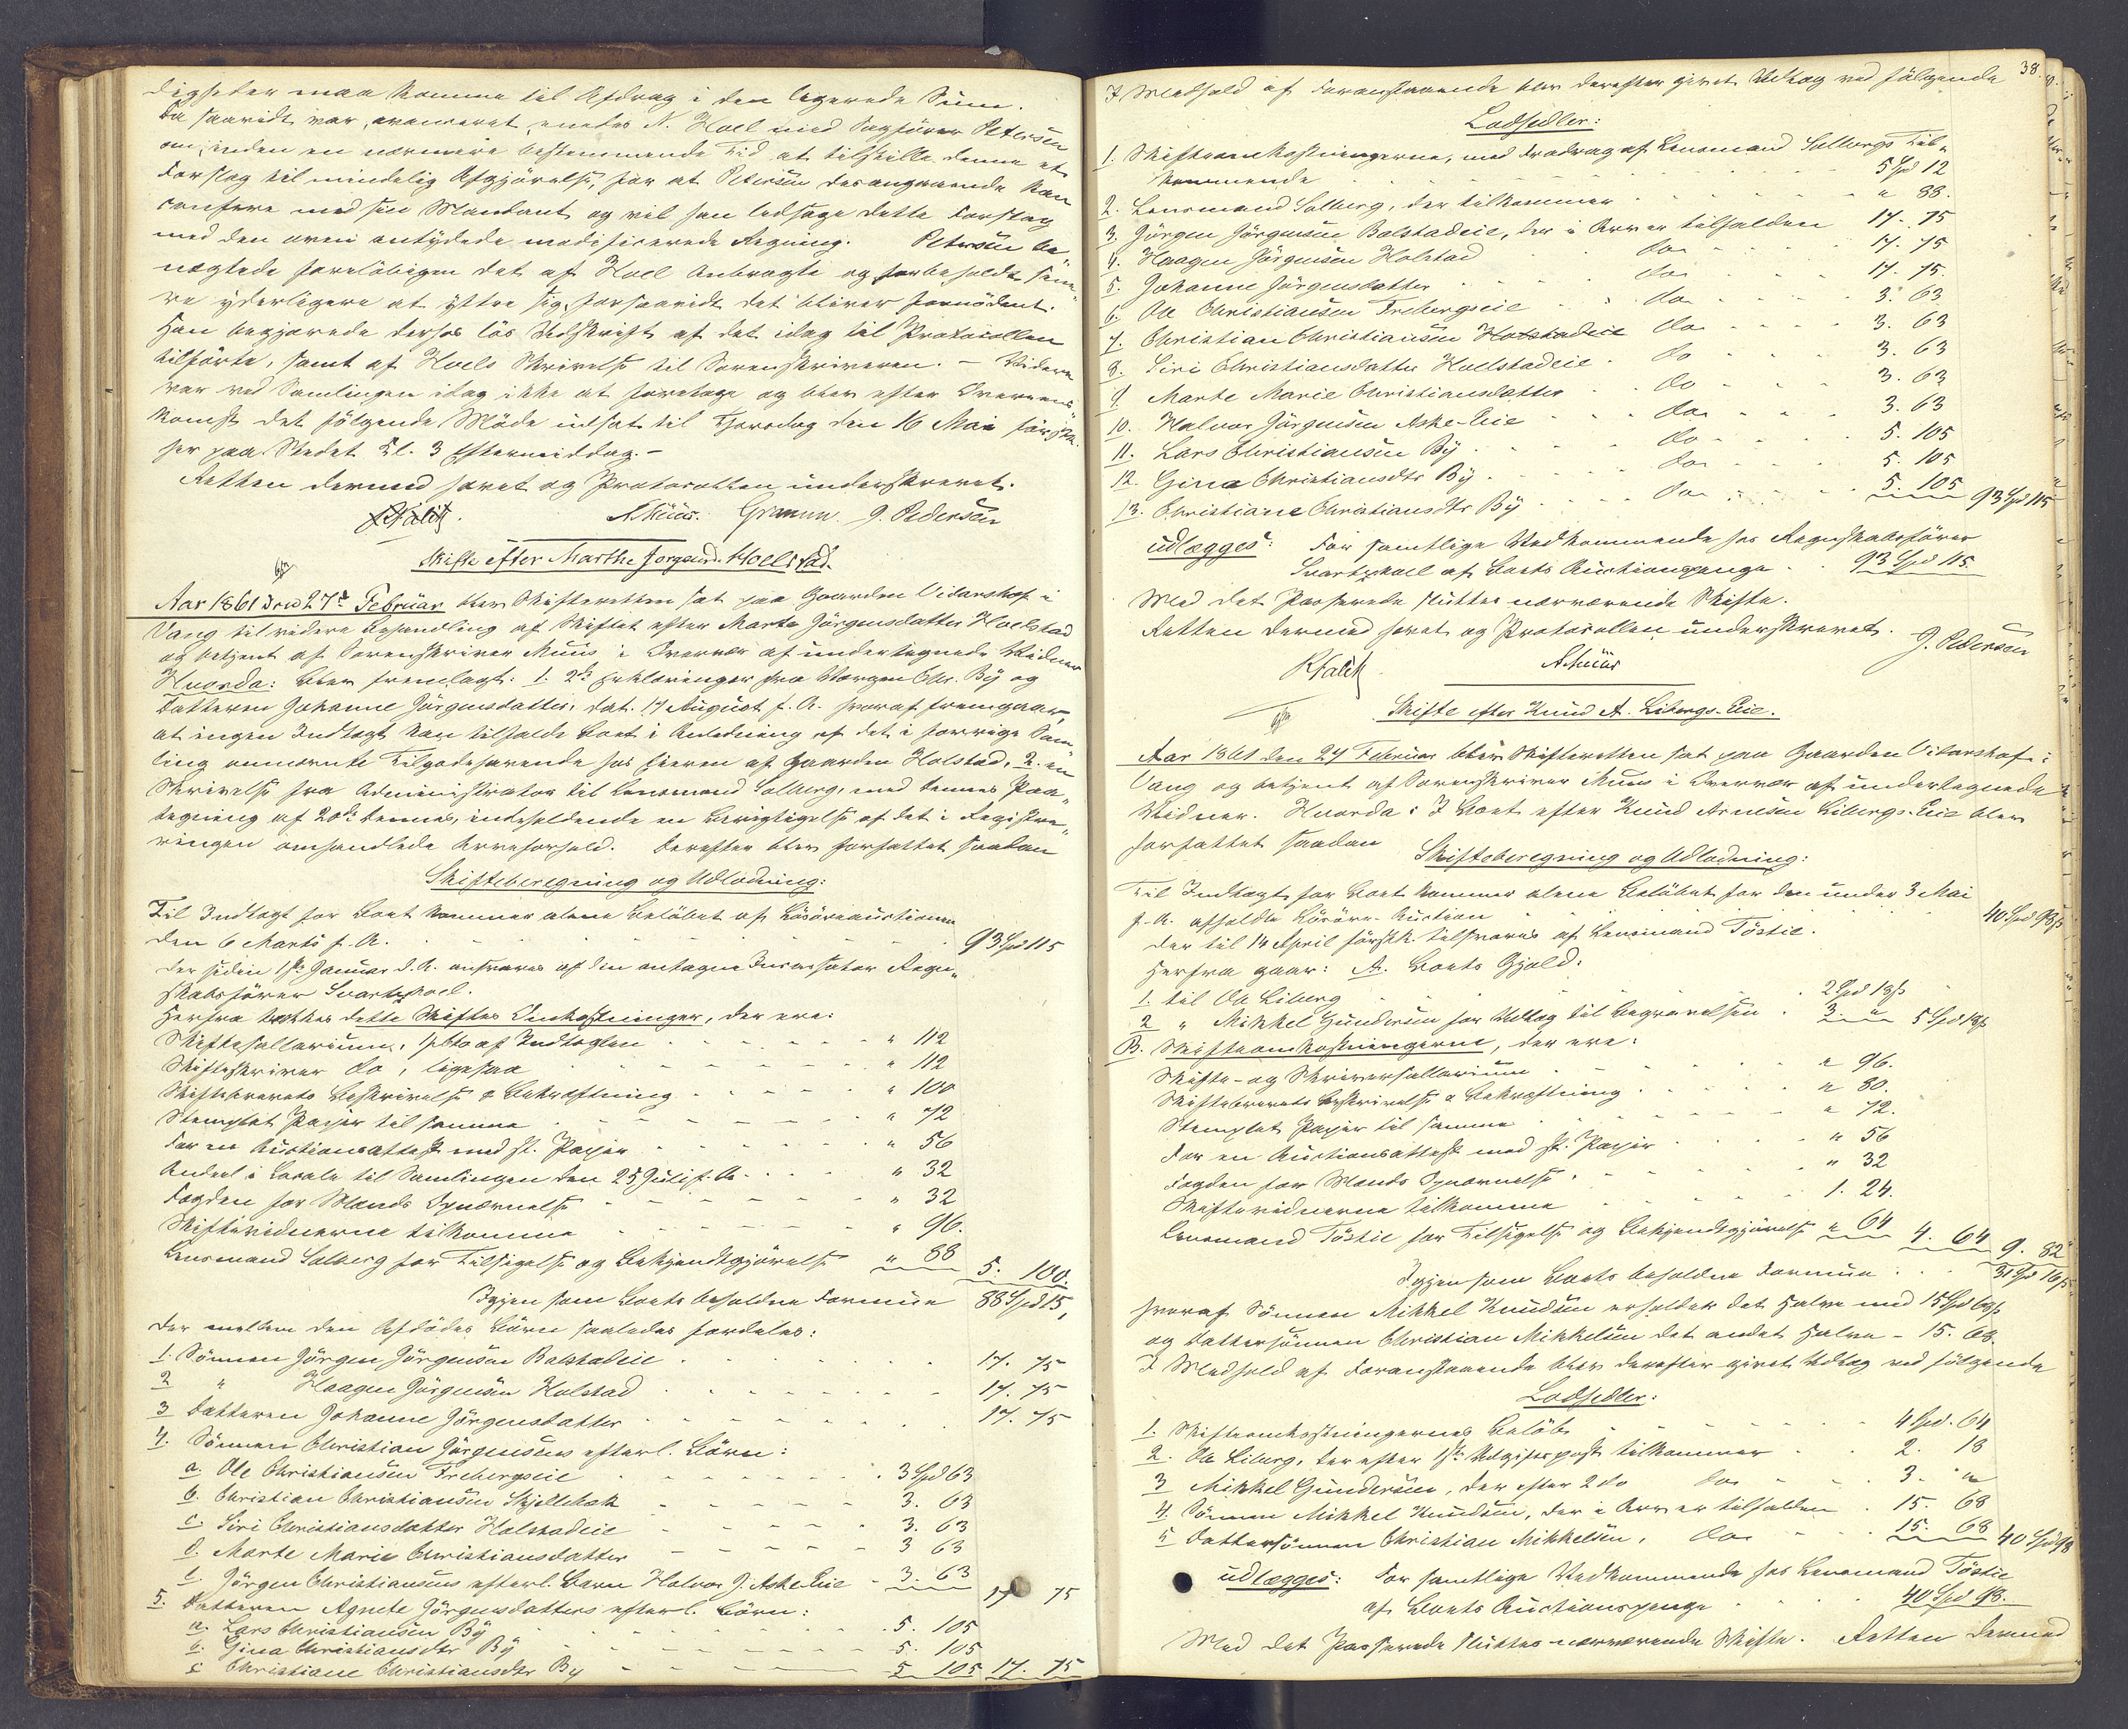 digheder maa komme til Afdrag i den begjerede Sum.
Da saavidt var avanceret, enedes N. Hoel med Sagfører Petersen
om, inden en nærmere bestemmende Tid at tilstille denne et
Forslag til mindelig Afgjørelse, for at Petersen desangaaende kan
conferere med sin Mandant og vil han ledsage dette Forslag
med den oven antydede modificerede Regning. Petersen be-
nægtede foreløbigen det af Hoel Anbragte og forbeholdt sene-
re yderligere at yttre sig, forsaavidt det bliver fornødent.
Han begjærede derhos løs Udskrift af det idag til Protocollen
tilførte, samt af Hoels Skrivelse til Sorenskriveren. - Videre
var ved Samlingen idag ikke at foretage og blev efter Overens-
komst det følgende Møde udsat til Thorsdag den 16 Mai førstk.
her paa Stedet Kl. 3 Eftermiddag. -
Retten dermed hævet og Protocollen underskrevet.
R Falck. A Muus. J. Pedersen
Skifte efter Marthe Jørgensd. Hoelstad.
Aar 1861 den 27de Februar blev Skifteretten sat paa Gaarden Vidarshof i
Vang til videre Behandling af Skiftet efter Marte Jørgensdatter Hoelstad
og betjent af Sorenskriver Muus i Overvær af undertegnede Vidner
Hvorda: blev fremlagt: 1. 2de Erklæringer fra Værgen Chr. By og
Datteren Johanne Jørgensdatter, dat. 17 August f. A. hvoraf fremgaar,
at ingen Indtægt kan tilfalde Boet i Anledning af det i forrige Sam-
ling omnævnte Tilgodehavende hos Eieren af Gaarden Holstad, 2. en
Skrivelse fra Administrator til Lensmand Solberg, med dennes Paa-
tegning af 20de dennes, indeholdende en Berigtigelse af det i Registre-
ringen omhandlede Arveforhold. Derefter blev forfattet saadan
Skifteberegning og Udlodning:
Til Indtægt for Boet kommer alene Beløbet af Løsøreauctionen
den 6 Marts f. A. . . . 93 Spd 115
der siden 1ste Januar d. A. ansvares af den antagne Incassator Regn-
skabsfører Svartzhoel.
Herfra trækkes dette Skiftes Omkostninger, der ere:
Skiftesallarium, 1 pCto af Indtægten . . . " 112
Skifteskriver do, ligesaa . . . " 112
Skiftebrevets Beskrivelse & Bekræftning . . . " 100
Stemplet Papir til samme . . . " 72
For en Auctionsattest med st. Papir . . . " 56
Andeel i Locale til Samlingen den 25 Juli f. A. . . . " 32
Fogden for Mands Opnævnelse . . . " 32
Skiftevidnerne tilkomme . . . " 96.
Lensmand Solberg for Tilsigelse og Bekjendtgjørelse " 88 5. 100.
Igjen som Boets beholdne Formue 88 Spd 15,
der mellem den Afdødes Børn saaledes fordeles:
1. Sønnen Jørgen Jørgensen Balstadeie . . . 17. 75
2 " Haagen Jørgensen Holstad . . . 17. 75
3 Datteren Johanne Jørgensdatter . . . 17. 75
4. Sønnen Christian Jørgensens efterl. Børn:
a. Ole Christiansen Frebergseie . . . 3 Spd 63
b. Christian Christiansen Skjellebæk . . . 3. 63
c. Siri Christiansdatter Holstadeie . . . 3. 63
d. Marte Marie Christiansdatter . . . 3 63
e. Jørgen Christiansens efterl. Barn Halvor J. Aske Eie - 3. 63 17 75
5. Datteren Agnete Jørgensdatters efterl. Børn:
a. Lars Christiansen By . . . 5. 105
b. Gina Christiansdtr By . . . 5. 105
c Christiane Christiansdtr By . . . 5 105 17. 75
38.
I Medhold af Foranstaaende blev derefter givet Udlæg ved følgende
Lodsedler:
1. Skifteomkostningerne, med Fradrag af Lensmand Solbergs Til-
kommende . . . 5 Spd 12
2. Lensmand Solberg, der tilkommer . . . " 88.
3. Jørgen Jørgensen Balstadeie, der i Arv er tilfalden 17. 75
4. Haagen Jørgensen Holstad . . do . . 17. 75
5. Johanne Jørgensdatter . . do . . 17. 75.
6. Ole Christiansen Frebergseie . . do . . 3. 63
7. Christian Christiansen Holstadeie do . . 3. 63
8. Siri Christiansdatter Hoelstadeie . do . . 3. 63
9 Marte Marie Christiansdatter . . do . . 3. 63
10. Halvor Jørgensen Aske-Eie . . do . . 3. 63
11. Lars Christiansen By . . do . . 5. 105
12. Gina Christiansdtr By . . do . . 5. 105
13. Christiane Christiansdtr By . . do . . 5. 105 93 Spd 115
udlægges: For samtlige Vedkommende hos Regnskabsfører
Svartzhoel af Boets Auctionspenge . . 93 Spd 115.
Med det Passerede sluttes nærværende Skifte.
Retten dermed hævet og Protocollen underskrevet.
R Falck A Muus J. Pedersen
Skifte efter Knud A. Libergs-Eie.
Aar 1861 den 27 Februar blev Skifteretten sat paa Gaarden Vidarshof i
Vang og betjent af Sorenskriver Muus i Overvær af undertegnede
Vidner. Hvorda: I Boet efter Knud Arnesen Libergs-Eie blev
forfattet saadan
Skifteberegning og Udlodning:
Til Indtægt for Boet kommer alene Beløbet for den under 3 Mai
f. A. afholdte Løsøre-Auction . . . 40 Spd 98 s
der til 14 April førstk. tilsvares af Lensmand Tøstie.
Herfra gaar: A. Boets Gjeld:
1. til Ole Liberg . . . 2 Spd 18 s
2 " Mikkel Gundersen for Udlæg til Begravelsen . 3. " 5 Spd 18 s
B. Skifteomkostningerne, der ere:
Skifte- og Skriversallarium . . . " 96.
Skiftebrevets Beskrivelse & Bekræftning . . . " 80.
Stemplet Papir til samme . . . " 72.
For en Auctionsattest med st. Papir . . . " 56
Fogden for Mands Opnævnelse . . . " 32
Skiftevidnerne tilkomme . . . 1. 24.
Lensmand Tøstie for Tilsigelse og Bekjendtgjørelse " 64 4. 64 9. 82
Igjen som Boets beholdne Formue . . . 31 Spd 16 s
hvoraf Sønnen Mikkel Knudsen erholder det Halve med 15 Spd 68 s
og Dattersønnen Christian Mikkelsen det andet Halve - 15. 68.
I Medhold af Foranstaaende blev derefter givet Udlæg ved følgende
Lodsedler:
1. Skifteomkostningernes Beløb . . . 4 Spd. 64
2. Ole Liberg, der efter 1ste Udgiftspost tilkommer . . 2. 18
3 Mikkel Gundersen, der efter 2 do do . . 3. "
4. Sønnen Mikkel Knudsen, der i Arv er tilfalden . 15. 68
5 Dattersønnen Christian Mikkelsen, do . . 15. 68 40 Spd 98
udlægges: For samtlige Vedkommende hos Lensmand Tøstie
af Boets Auctionspenge . . . 40 Spd 98.
Med det Passerede sluttes nærværende Skifte. Retten dermed